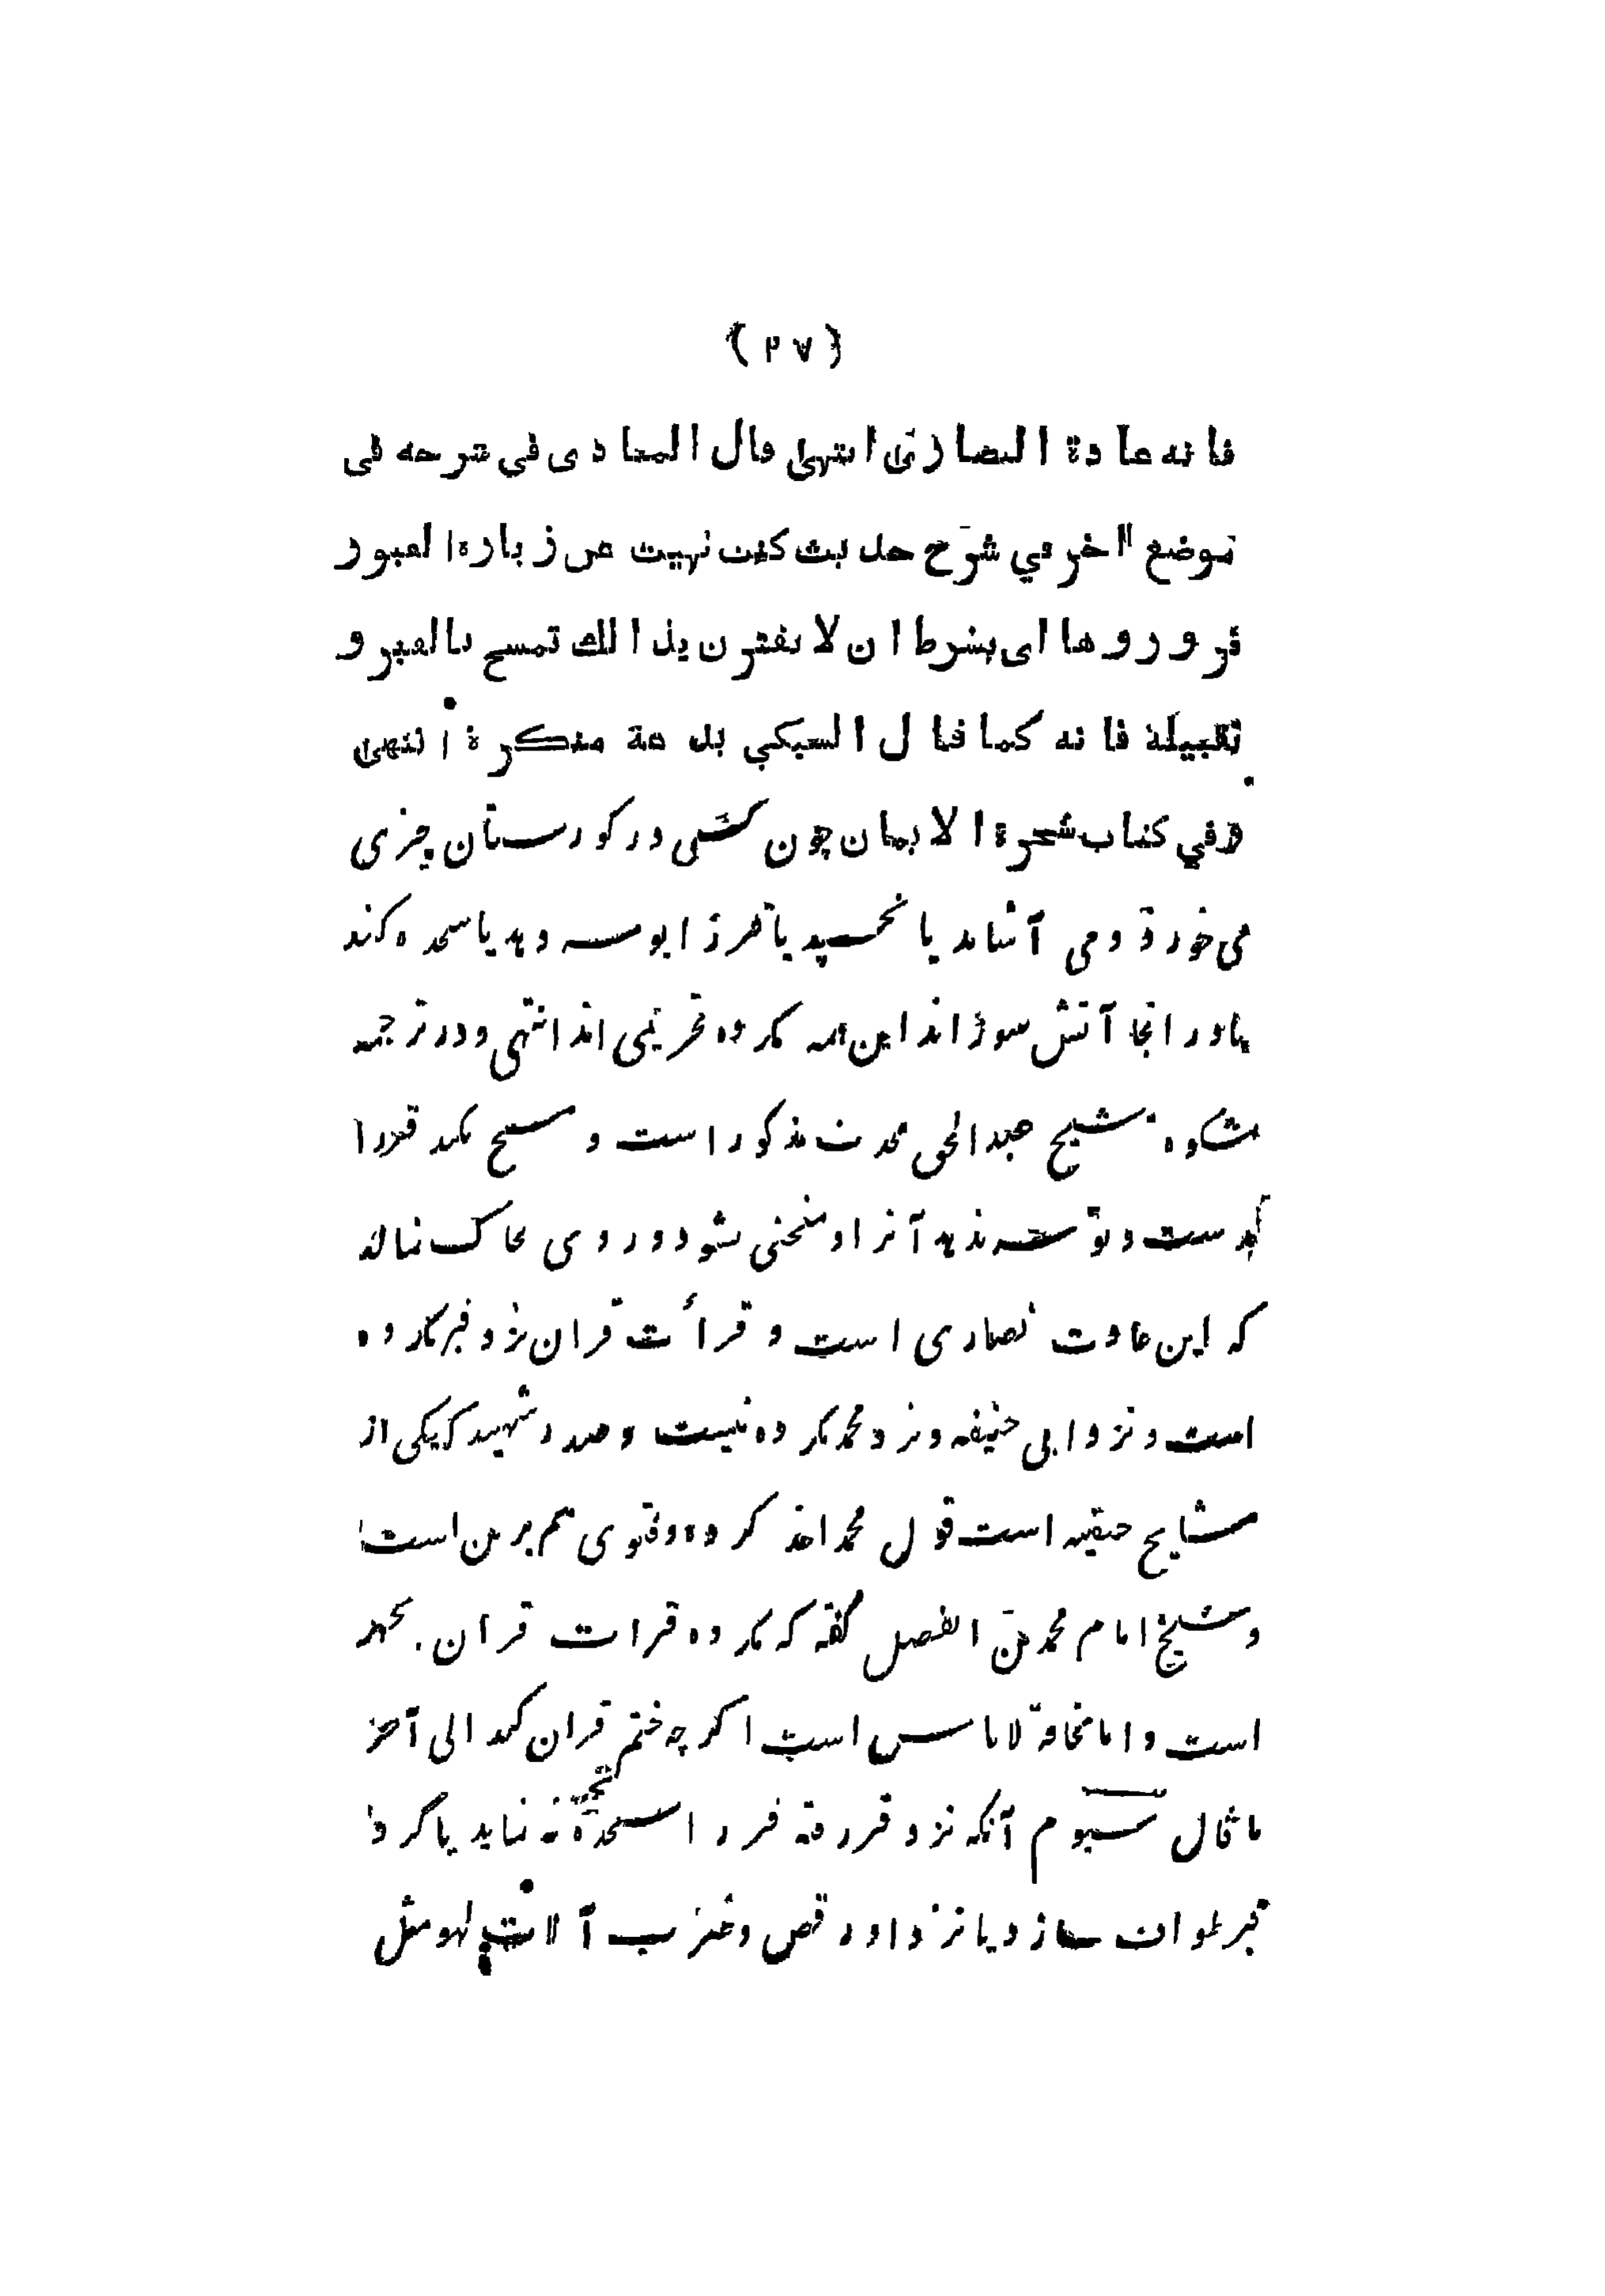 (۲۷)
فانه عادة النصارى انتهى قال المناوى فى شرحه فى
موضع اخر في شرح حديث كنت نهيت عن زيارة القبور
فزوروها اى بشرط ان لا يقترن بذالك تمسح بالقبر و
تقبيله فانه كما قال السبكي بدعة منكرة انتهى
وفي كتاب شجرة الايمان چون کسی در کورستان چیزی
می خورد و می آشامد یا نخسپد یا قبر را بوسه دهد یا سجده کند
یا در انجا آتش سوزاند این همه مکروه تحریمی اند انتهی و در ترجمه
مشکوه شیخ عبدالحق محدث مذکور است و مسح نکند قبر را
بدست و بوسه ندهد آنرا و منحنی نشود و روی بخاک نمالد
که این عادت نصاری است و قرأت قران نزد قبر مکروه
است نزد ابی حنیفه و نزد محمد مکروه نیست و صدر شهید که یکی از
مشایخ حنفیه است قول محمد اخذ کرده و فتوی هم برین است
و شیخ امام محمد بن الفضل گفته که مکروه قرات قران بجهر
است و اما مخافة لا باس است اگر چه ختم قران کند الی آخر
ما قال سیوم آنکه نزد قبر رفته قبر را سجده تحیة نه نماید یا گرد
قبر طواف سازد یا نزد او رقص و ضرب آلات لهو مثل